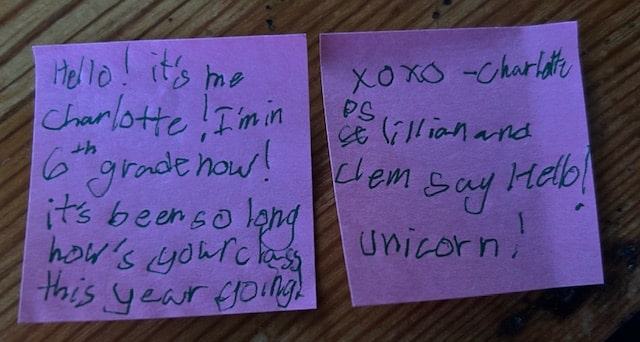 Hello! it's me
Charlotte! I'm in
6th grade now!
it's been so long
how's your class
this year going?
XOXO -Charlotte
PS
lillian and
Clem say Hello!
unicorn!